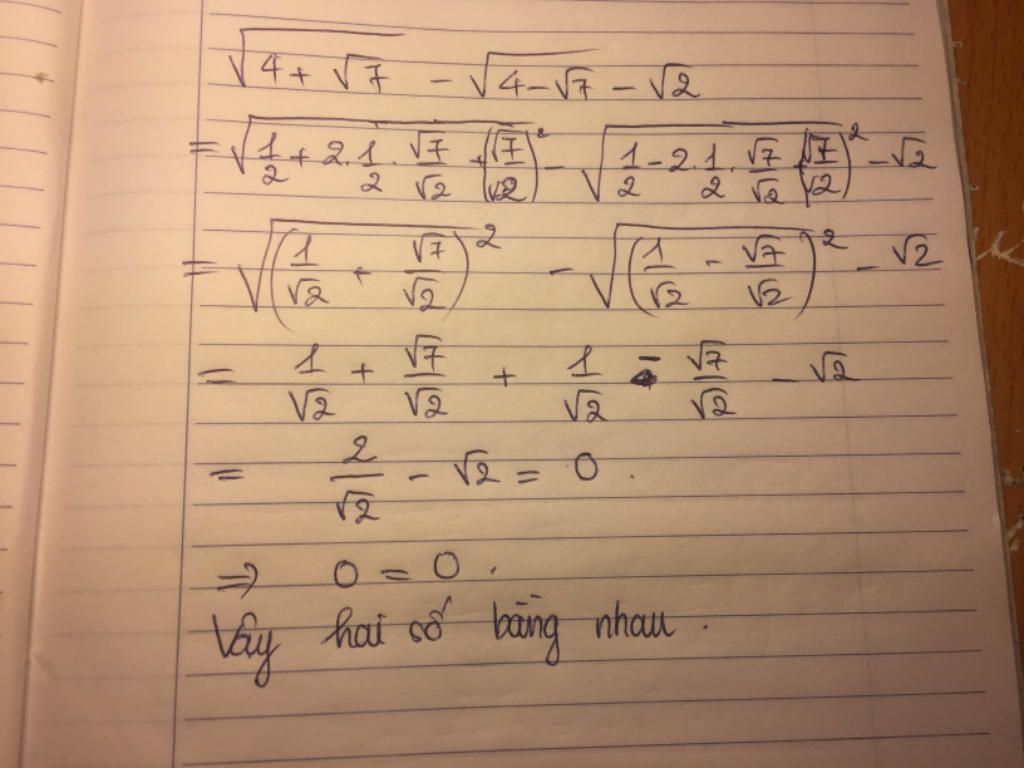 √(4 + √7) - √(4 - √7) - √2
= √(1/2 + 2.1/2.√7/√2 + (√7/√2)²) - √(1/2 - 2.1/2.√7/√2 + (√7/√2)²) - √2
= √((1/√2 + √7/√2)²) - √((1/√2 - √7/√2)²) - √2
= 1/√2 + √7/√2 + 1/√2 - √7/√2 - √2
= 2/√2 - √2 = 0.
⇒ 0 = 0.
Vậy hai số bằng nhau.